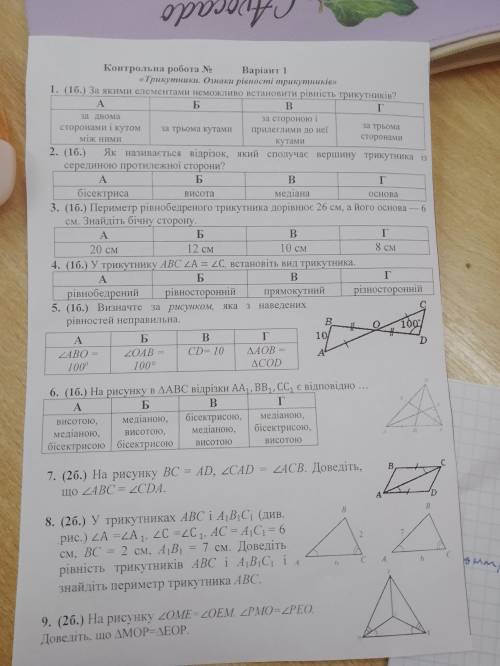 Avocado
Контрольна робота № Варіант 1
«Трикутники. Ознаки рівності трикутників»
1. (1б.) За якими елементами неможливо встановити рівність трикутників?
А Б В Г
за двома сторонами і кутом між ними
за трьома кутами
за стороною і прилеглими до неї кутами
за трьома сторонами
2. (1б.) Як називається відрізок, який сполучає вершину трикутника із
серединою протилежної сторони?
А Б В Г
бісектриса висота медіана основа
3. (1б.) Периметр рівнобедреного трикутника дорівнює 26 см, а його основа — 6
см. Знайдіть бічну сторону.
А Б В Г
20 см 12 см 10 см 8 см
4. (1б.) У трикутнику ABC ∠A = ∠C, встановіть вид трикутника.
А Б В Г
рівнобедрений рівносторонній прямокутний різносторонній
5. (1б.) Визначте за рисунком, яка з наведених
рівностей неправильна.
А Б В Г
∠ABO = 100°
∠OAB = 100°
CD= 10
ΔAOB = ΔCOD
B O C 100° 10 A D
6. (1б.) На рисунку в ΔABC відрізки AA₁, BB₂, CC₃ є відповідно ...
А Б В Г
висотою, медіаною, бісектрисою
медіаною, висотою, бісектрисою
бісектрисою, медіаною, висотою
медіаною, бісектрисою, висотою
7. (2б.) На рисунку BC = AD, ∠CAD = ∠ACB. Доведіть,
що ∠ABC = ∠CDA.
B C
A D
8. (2б.) У трикутниках ABC і A₁B₁C₁ (див.
рис.) ∠A =∠A₁, ∠C =∠C₁, AC = A₁C₁ = 6
см, BC = 2 см, A₁B₁ = 7 см. Доведіть
рівність трикутників ABC і A₁B₁C₁ і
знайдіть периметр трикутника ABC.
B 2 A 6 C
B 7 A 6 C
9. (2б.) На рисунку ∠OME=∠OEM, ∠PMO=∠PEO.
Доведіть, що ΔMOP=ΔEOP.